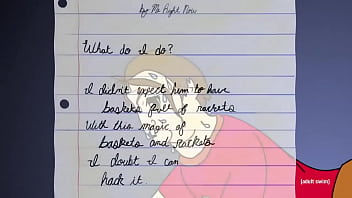 Mr Right Now
What do I do?
I didn't expect him to have
baskets full of
With this magic of
baskets and rackets
I doubt I can
hack it.
[adult swim]